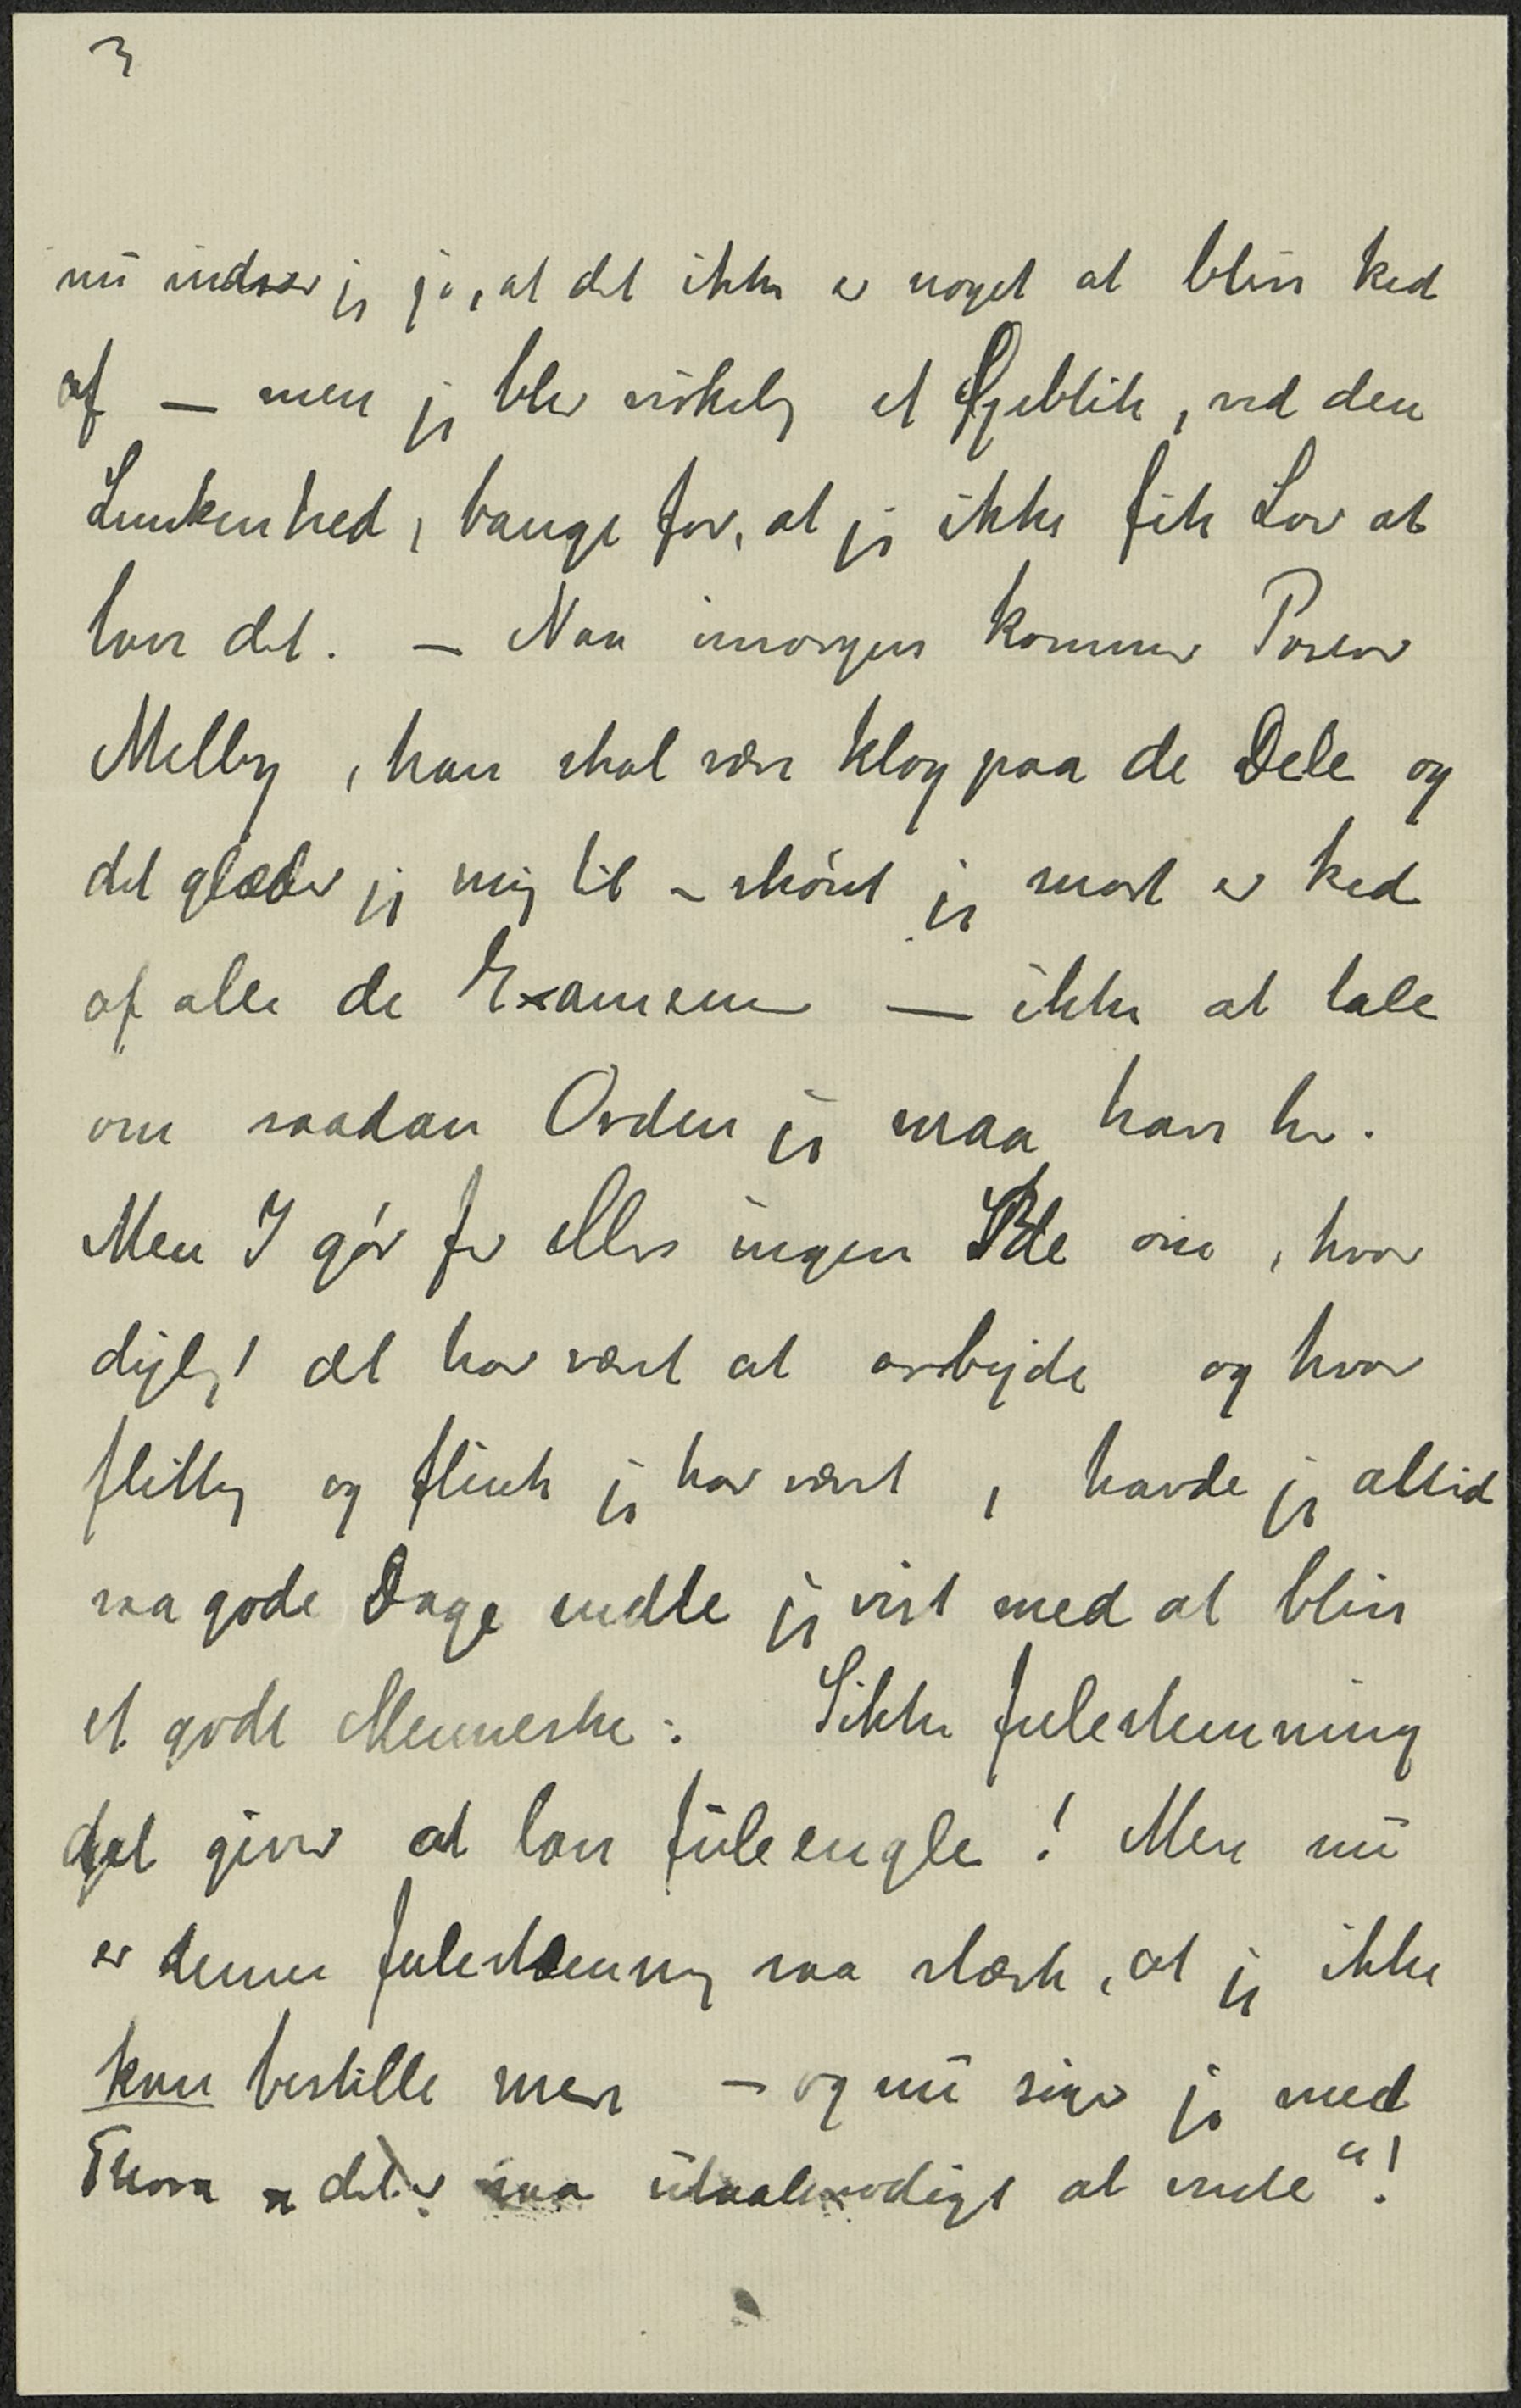 3
nu indser jeg jo, at det ikke er noget at blive ked
af — men jeg blev virkelig et Øjeblik, ved den
Lunkenhed, bange for, at jeg ikke fik Lov at
lave det. — Naa imorgen kommer Pastor
Melby, han skal være klog paa de Dele og
det glæder jeg mig til – skønt jeg snart er ked
af alle de Examener — ikke at tale
om saadan Orden jeg maa have her.
Men I gør jer ellers ingen Ide om, hvor
dejligt det har været at arbejde og hvor
flittig og flink jeg har været, havde jeg altid
saa gode Dage endte jeg vist med at blive
et godt Menneske. Sikke Julestemning
det giver at lave Juleengle! Men nu
er denne Julestemning saa stærk, at jeg ikke
kan bestille mere – og nu siger jeg med
Thora „det er saa utaalmodigt at vente"!